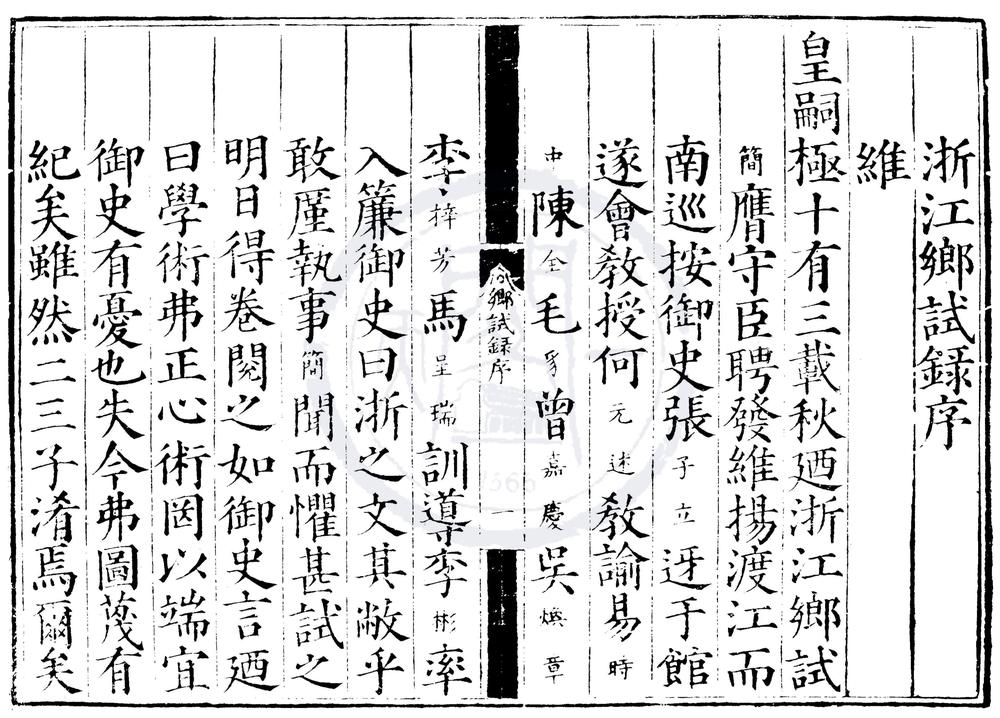 浙江鄉試録序
維
皇嗣極十有三載秋廼浙江鄉試
簡膺守臣聘發維揚渡江而
南巡按御史張子立迓于館
遂會教授何元述教諭易時
中陳全毛豸曾嘉慶吳焕章
浙鄉試録序
一
李梓芳馬呈瑞訓導李彬率
入簾御史曰浙之文其敝乎
敢厪執事簡聞而懼甚試之
明日得卷閱之如御史言廼
曰學術弗正心術罔以端宜
御史有憂也失今弗圖蔑有
紀矣雖然二三子淆焉爾矣
1566